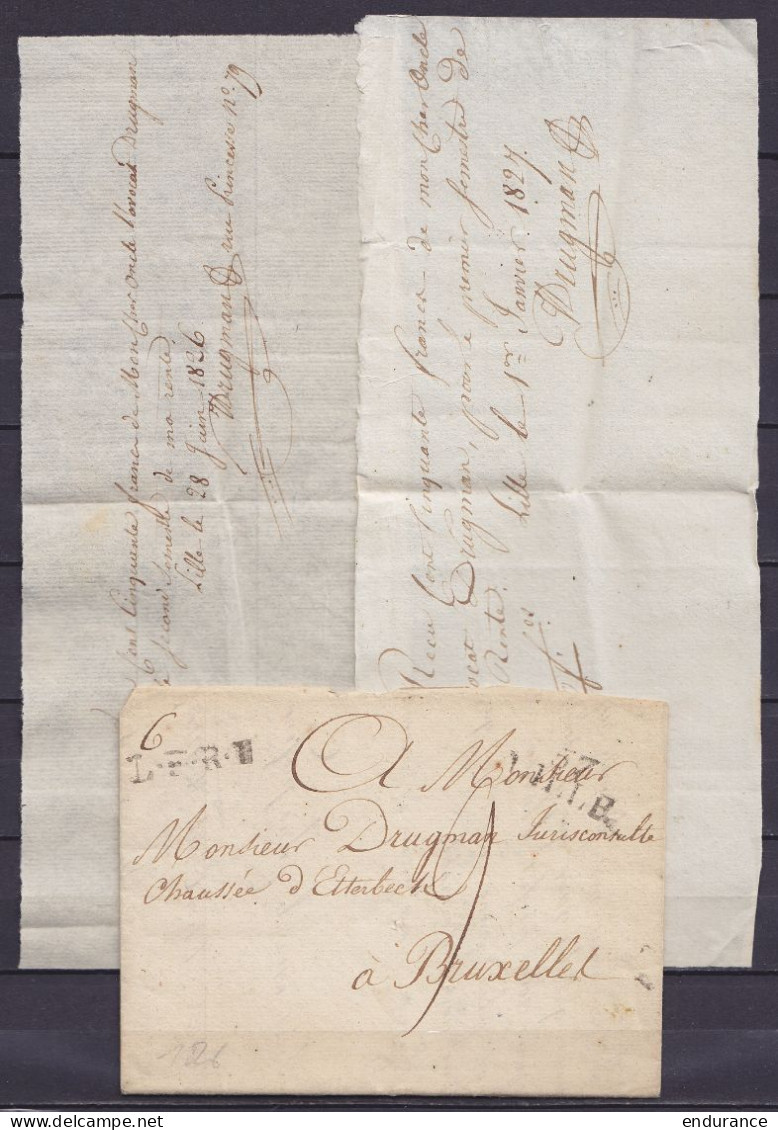 cent Cinquante francs de Mon cher Oncle l'avocat Drugman
second Semestre de ma rente.
Lille le 28 Juin 1826
Drugman rue Princesse n.° 79
Recu Cent Cinquante francs de mon Cher Oncle
Drugman, pour le premier semestre de
Rente.
Lille le 1er Janvier 1827.
Drugman
6
L.F.R.1
A Monsieur
Monsieur Drugman Jurisconsulte
Chaussée d'Etterbeck
à Bruxelles
1826
endurance